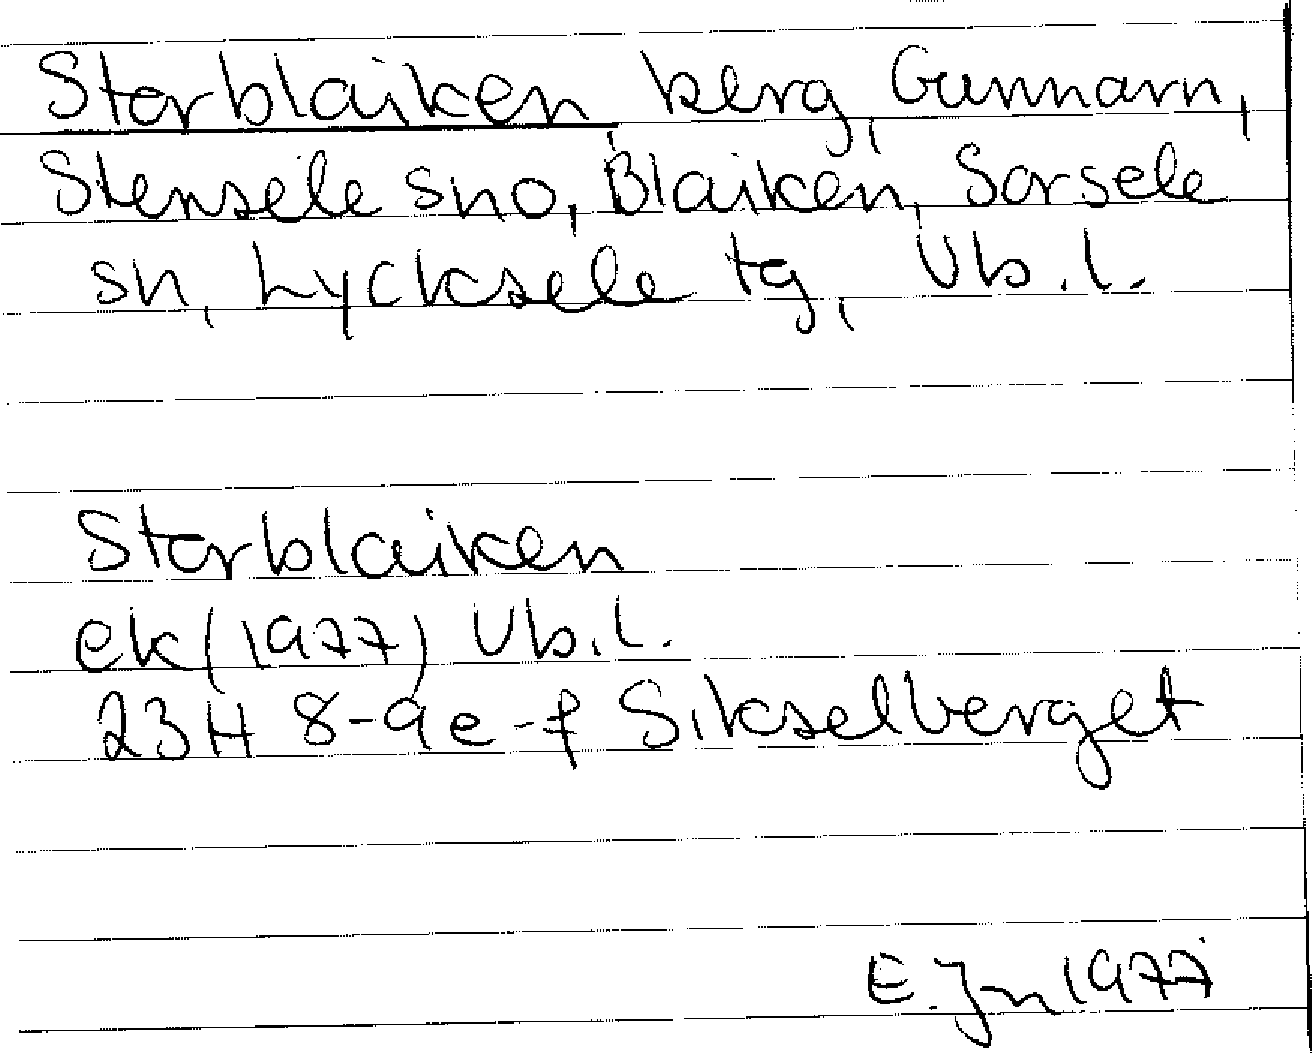 Storblaiken berg, Gunnarn,
Stensele sno, Blaiken, Sorsele
sn, Lycksele tg, Vb.l.
Storblaiken
ek(1977) Vb.l.
23H 8-9e-f Sikselberget
E.Jn 1977